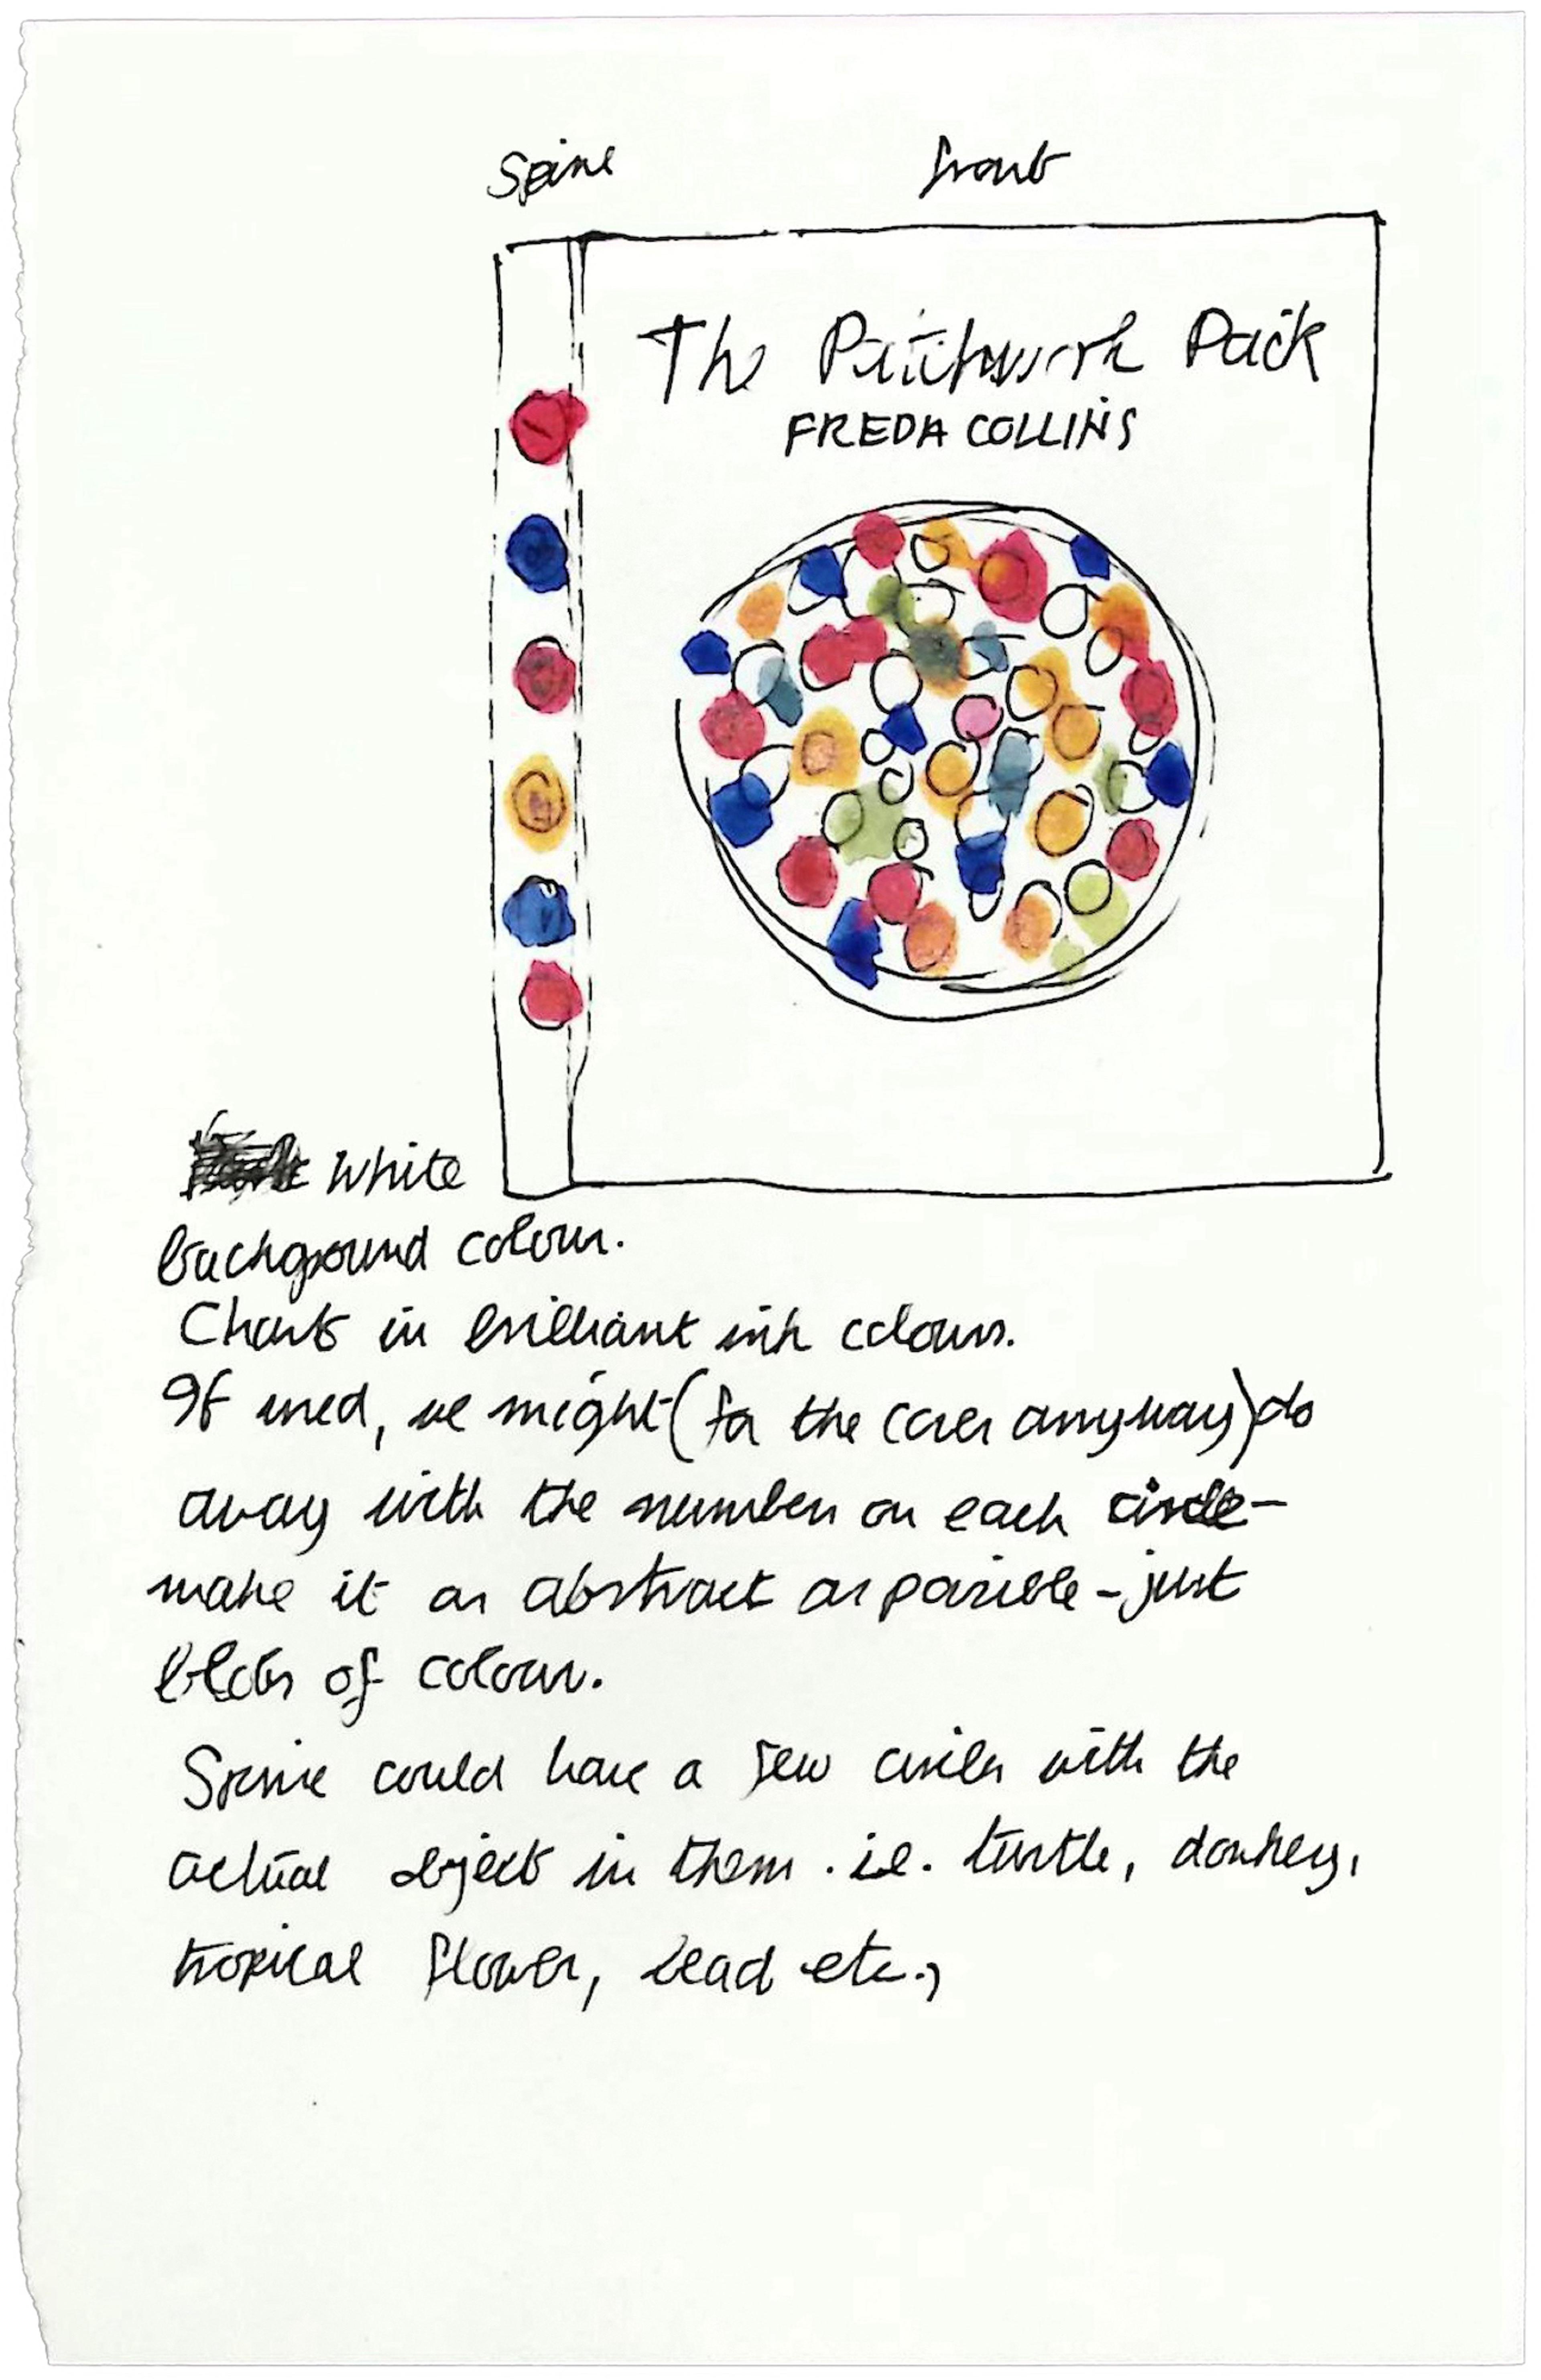 Spine front
The Patchwork Pack
FREDA COLLINS
White
background colour.
Chart in brilliant ink colours.
If used, we might (for the cover anyway) do
away with the numbers on each circle -
make it as abstract as possible - just
blobs of colour.
Spine could have a few circles with the
actual objects in them. i.e. turtle, donkey,
tropical flower, bead etc.,